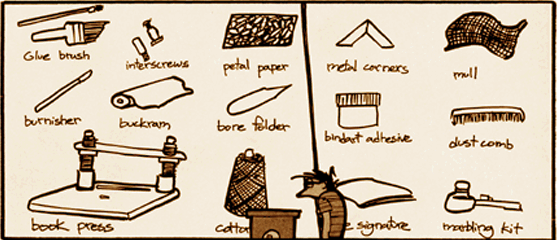 Glue brush
interscrews
petal paper
metal corners
mull
burnisher
buckram
bone folder
bindart adhesive
dust comb
book press
signature
marbling kit